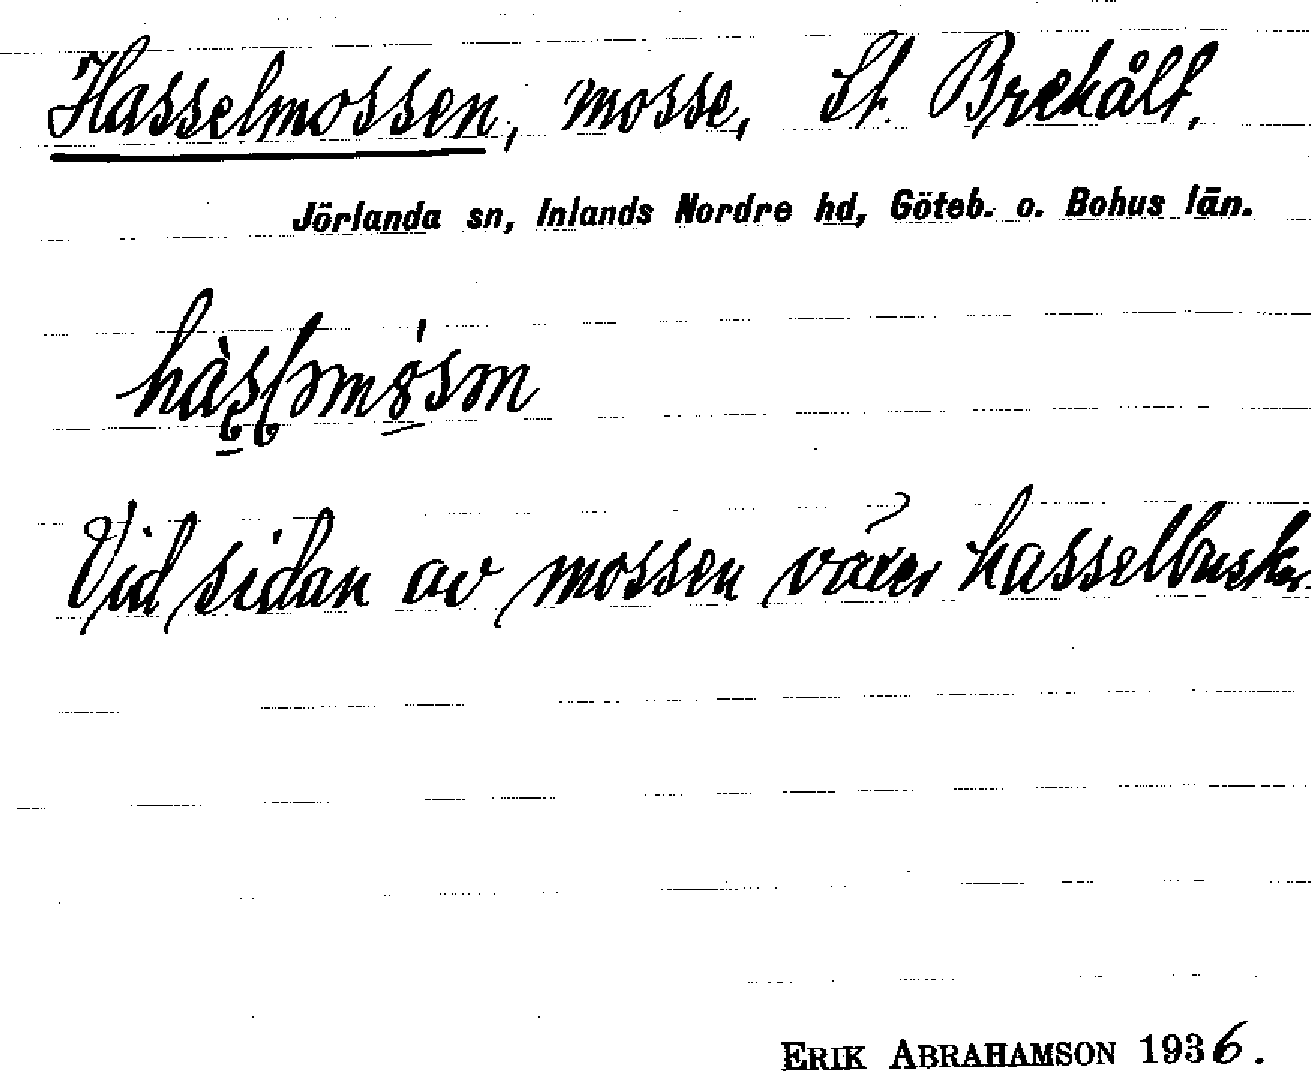 Hasselmossen, mosse, St. Brekålt.
Jörlanda sn, Inlands Nordre hd, Göteb. o. Bohus län.
Vid sidan av mossen växer hasselbuskar
ERIK ABRAHAMSON 1936.